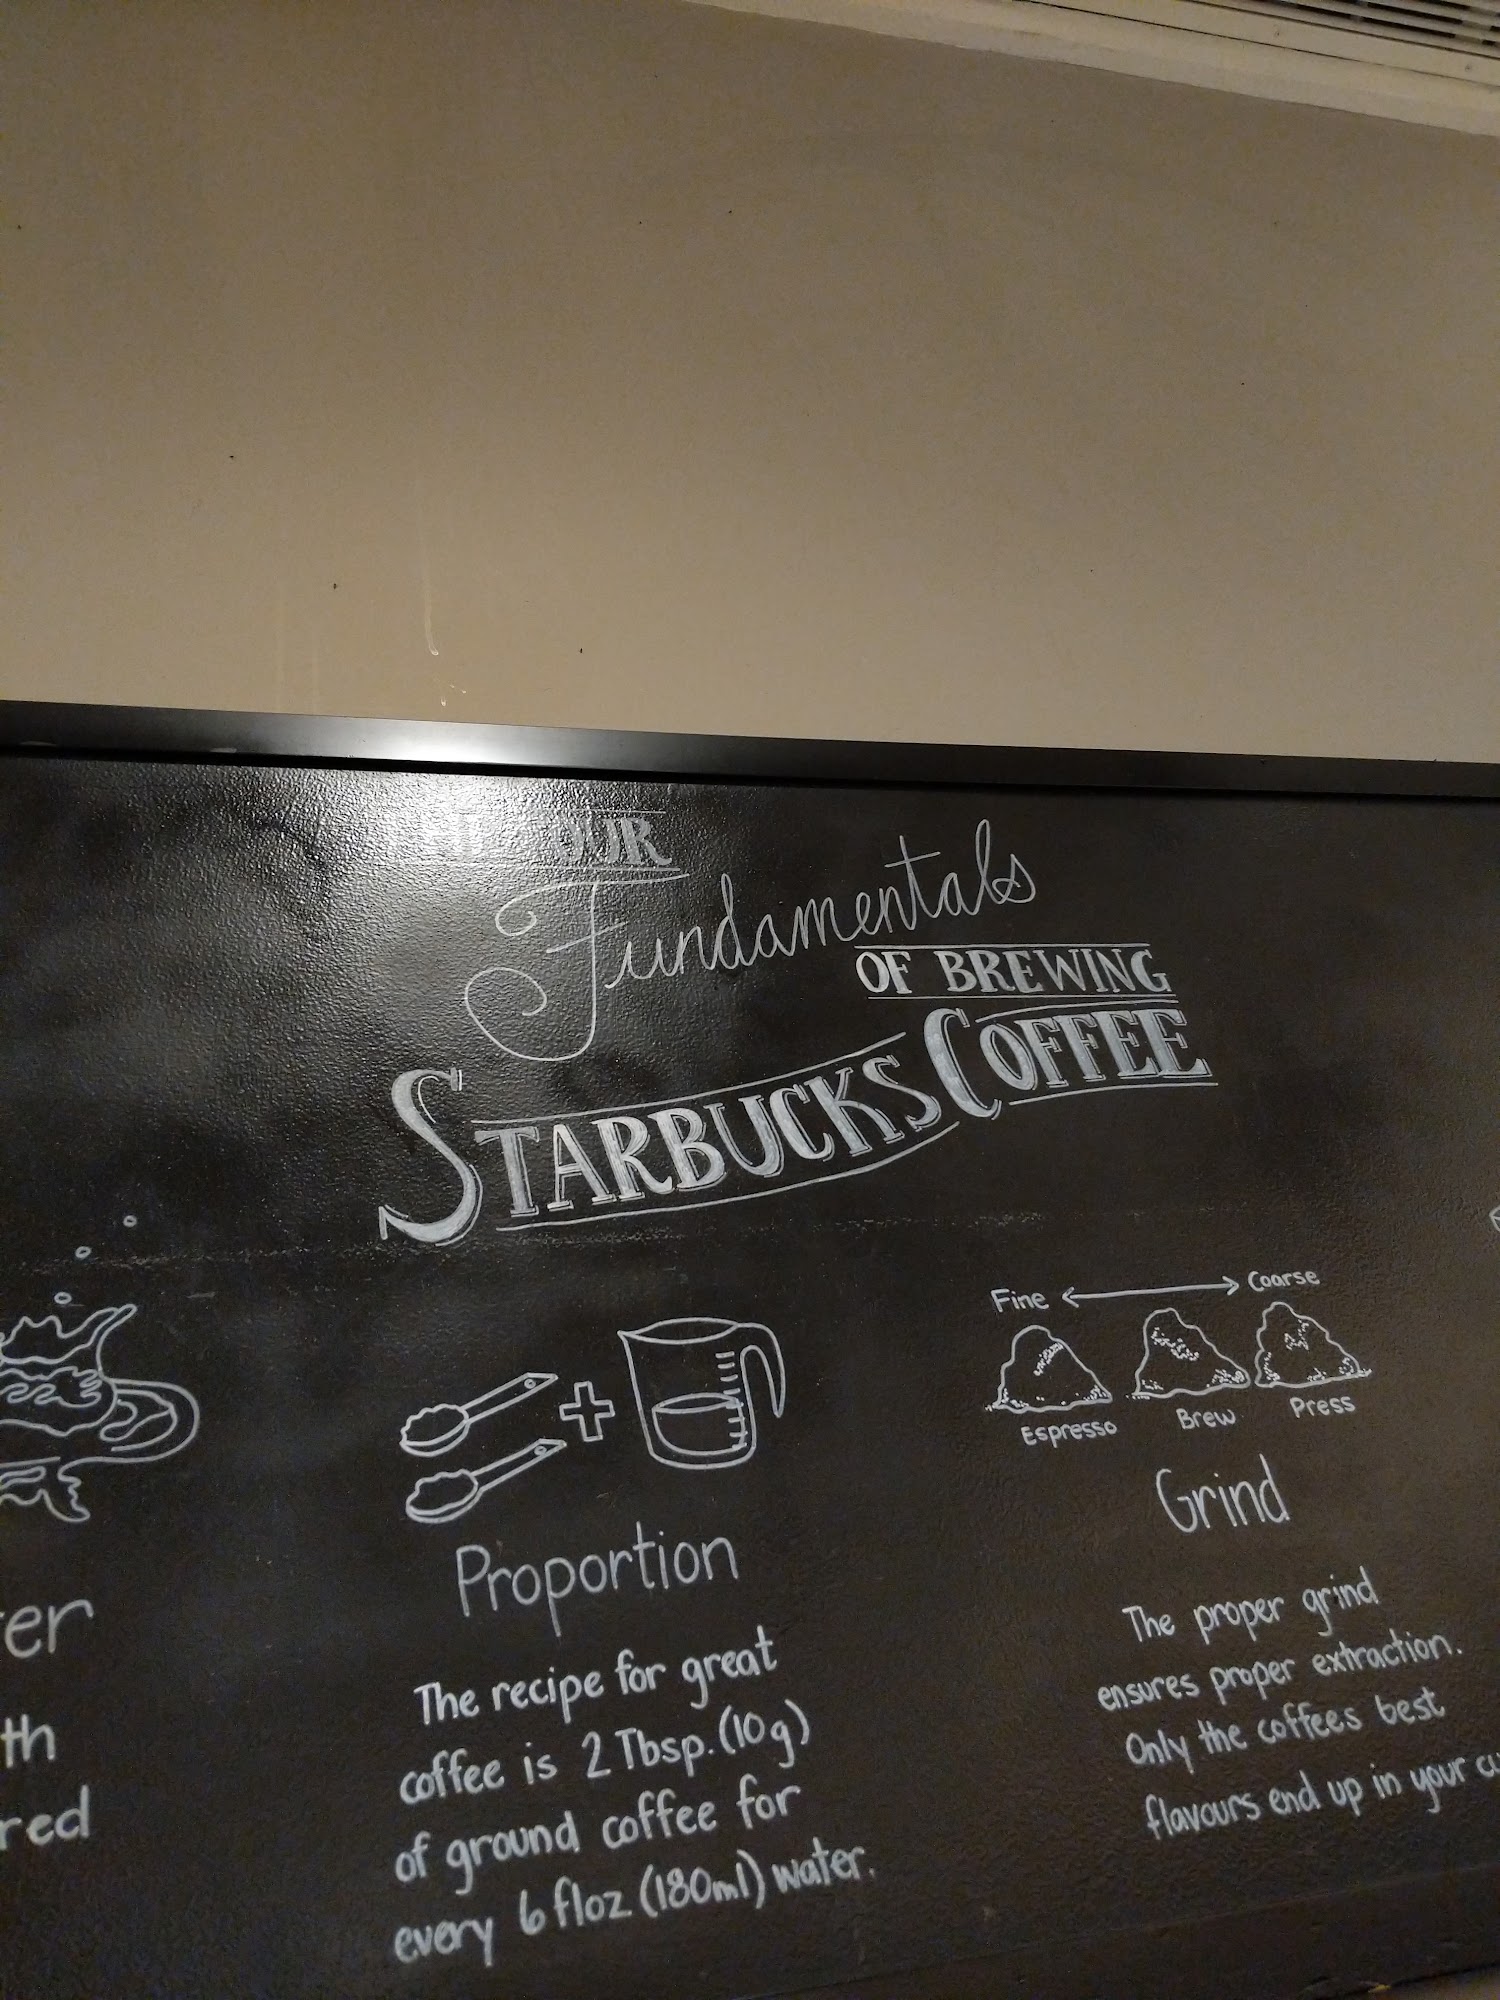 OUR
Fundamentals
OF BREWING
STARBUCKS COFFEE
er
th
red
Proportion
The recipe for great
coffee is 2 Tbsp. (10g)
of ground coffee for
every 6 floz (180ml) water.
Fine Coarse
Espresso Brew Press
Grind
The proper grind
ensures proper extraction.
Only the coffees best
flavours end up in your cu